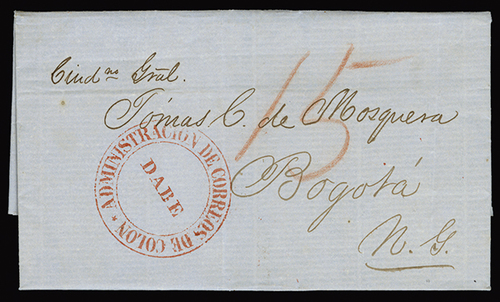 Ciudno Gral.
Tomas C. de Mosquera
15
Bogotá
N. G.
ADMINISTRACION DE CORREOS DE COLON
DABE